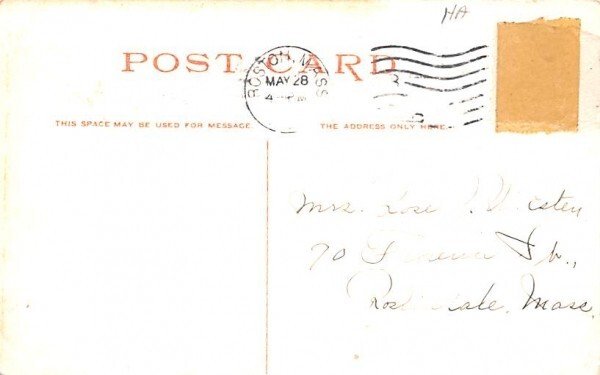 HA
POST CARD
BOSTON, MASS
MAY 28
4 PM
THIS SPACE MAY BE USED FOR MESSAGE
THE ADDRESS ONLY HERE
Mrs. Rose
70
Mass.